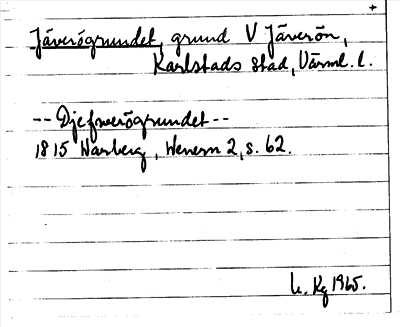 +
Jäverögrundet, grund V Jäverön,
Karlstads stad, Värml. l.
-- Djefwerögrundet --
1815 Warberg, Wenern 2, s. 62.
L. Kg 1965.